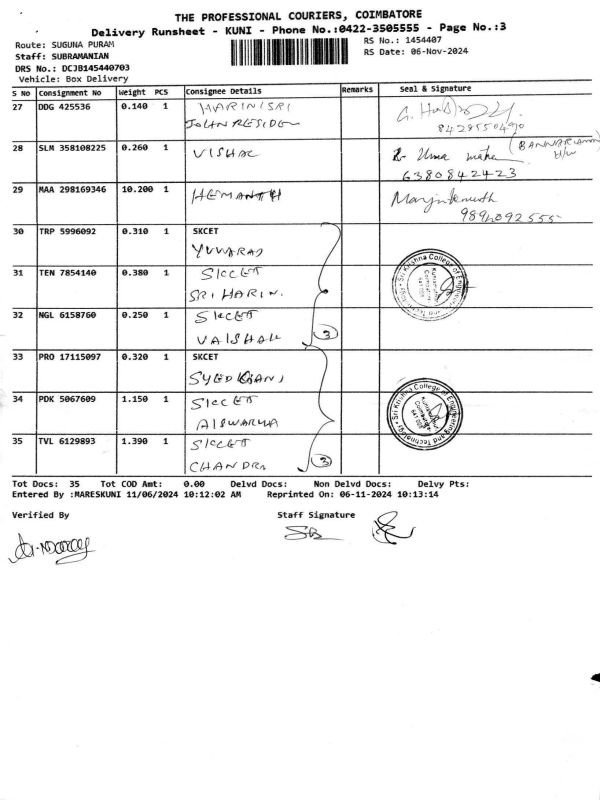 THE PROFESSIONAL COURIERS, COIMBATORE
Delivery Runsheet - KUNI - Phone No.:0422-3505555 - Page No.:3
Route: SUGUNA PURAM
RS No.: 1454407
Staff: SUBRAMANIAN
RS Date: 06-Nov-2024
DRS No.: DCJB145440703
Vehicle: Box Delivery
S No Consignment No Weight PCS Consignee Details Remarks Seal & Signature
27 DDG 425536 0.140 1 HARINISRI
JOHN RESIDEN
8428550490
28 SLM 358108225 0.260 1 VISHAL
Uma
(BANNARIAMMAN
H/W
6380842423
29 MAA 298169346 10.200 1 HEMANTH
30 TRP 5996092 0.310 1 SKCET
YUVARAJ
31 TEN 7854140 0.380 1 SKCET
SRI HARIN.
Sri Krishna College of Engineering and Technology
Kuniamuthur
Coimbatore
641 008
32 NGL 6158760 0.250 1 SKCET
VAISHAK
3
33 PRO 17115097 0.320 1 SKCET
SYED
34 PDK 5067609 1.150 1 SKCET
AISWARYA
Sri Krishna College of Engineering and Technology
Kuniamuthur
Coimbatore
641 008
35 TVL 6129893 1.390 1 SKCET
CHANDRA
3
Tot Docs: 35 Tot COD Amt: 0.00 Delvd Docs: Non Delvd Docs: Delvy Pts:
Entered By :MARESKUNI 11/06/2024 10:12:02 AM Reprinted On: 06-11-2024 10:13:14
Verified By
Staff Signature